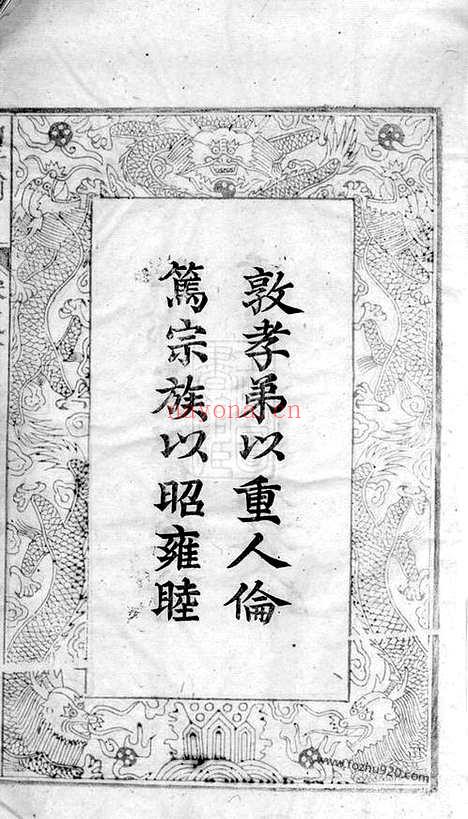 敦孝弟以重人倫
篤宗族以昭雍睦
nayona.cn
www.fozhu920.com